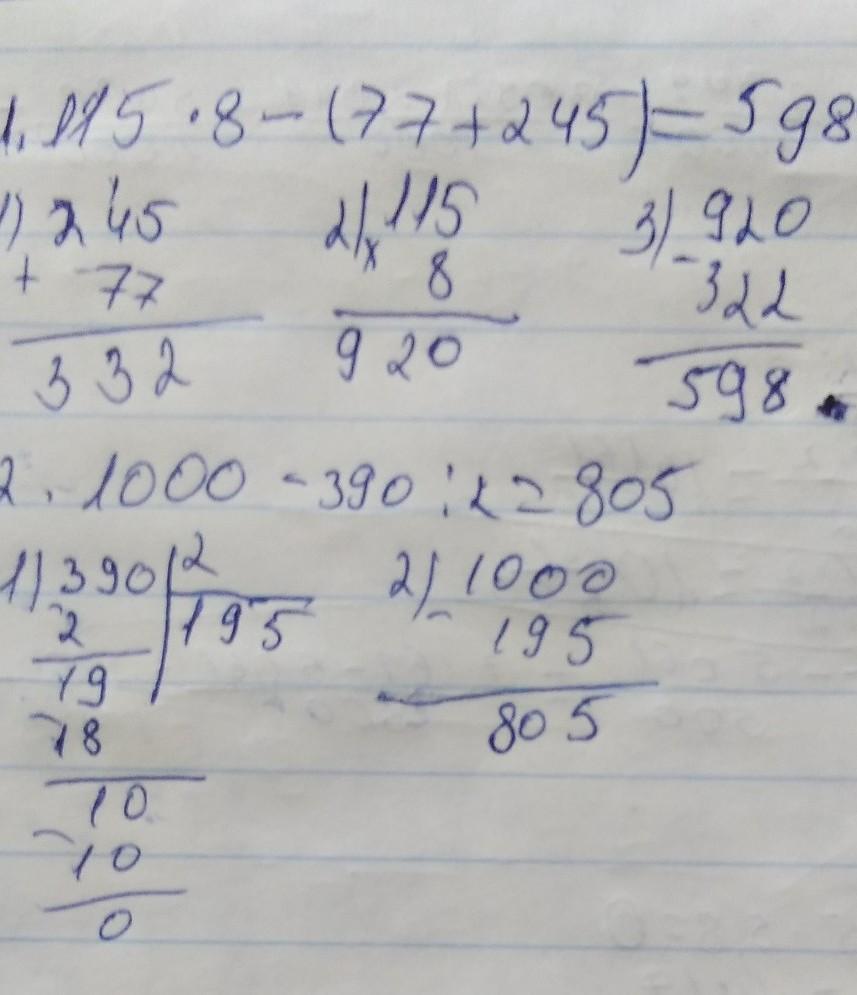 1. 115 · 8 - (77 + 245) = 598
1) 245 2) 115 3) 920
+ 77 x 8 - 322
332 920 598
2. 1000 - 390 : 2 = 805
1) 390 | 2 2) 1000
- 2 | 195 - 195
19 805
- 18
10
- 10
0